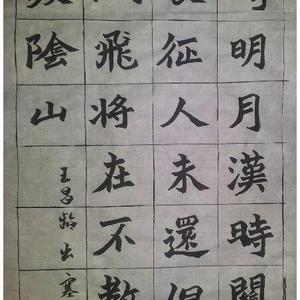 明月漢時關
征人未還但
飛将在不教
陰山
王昌齡出塞